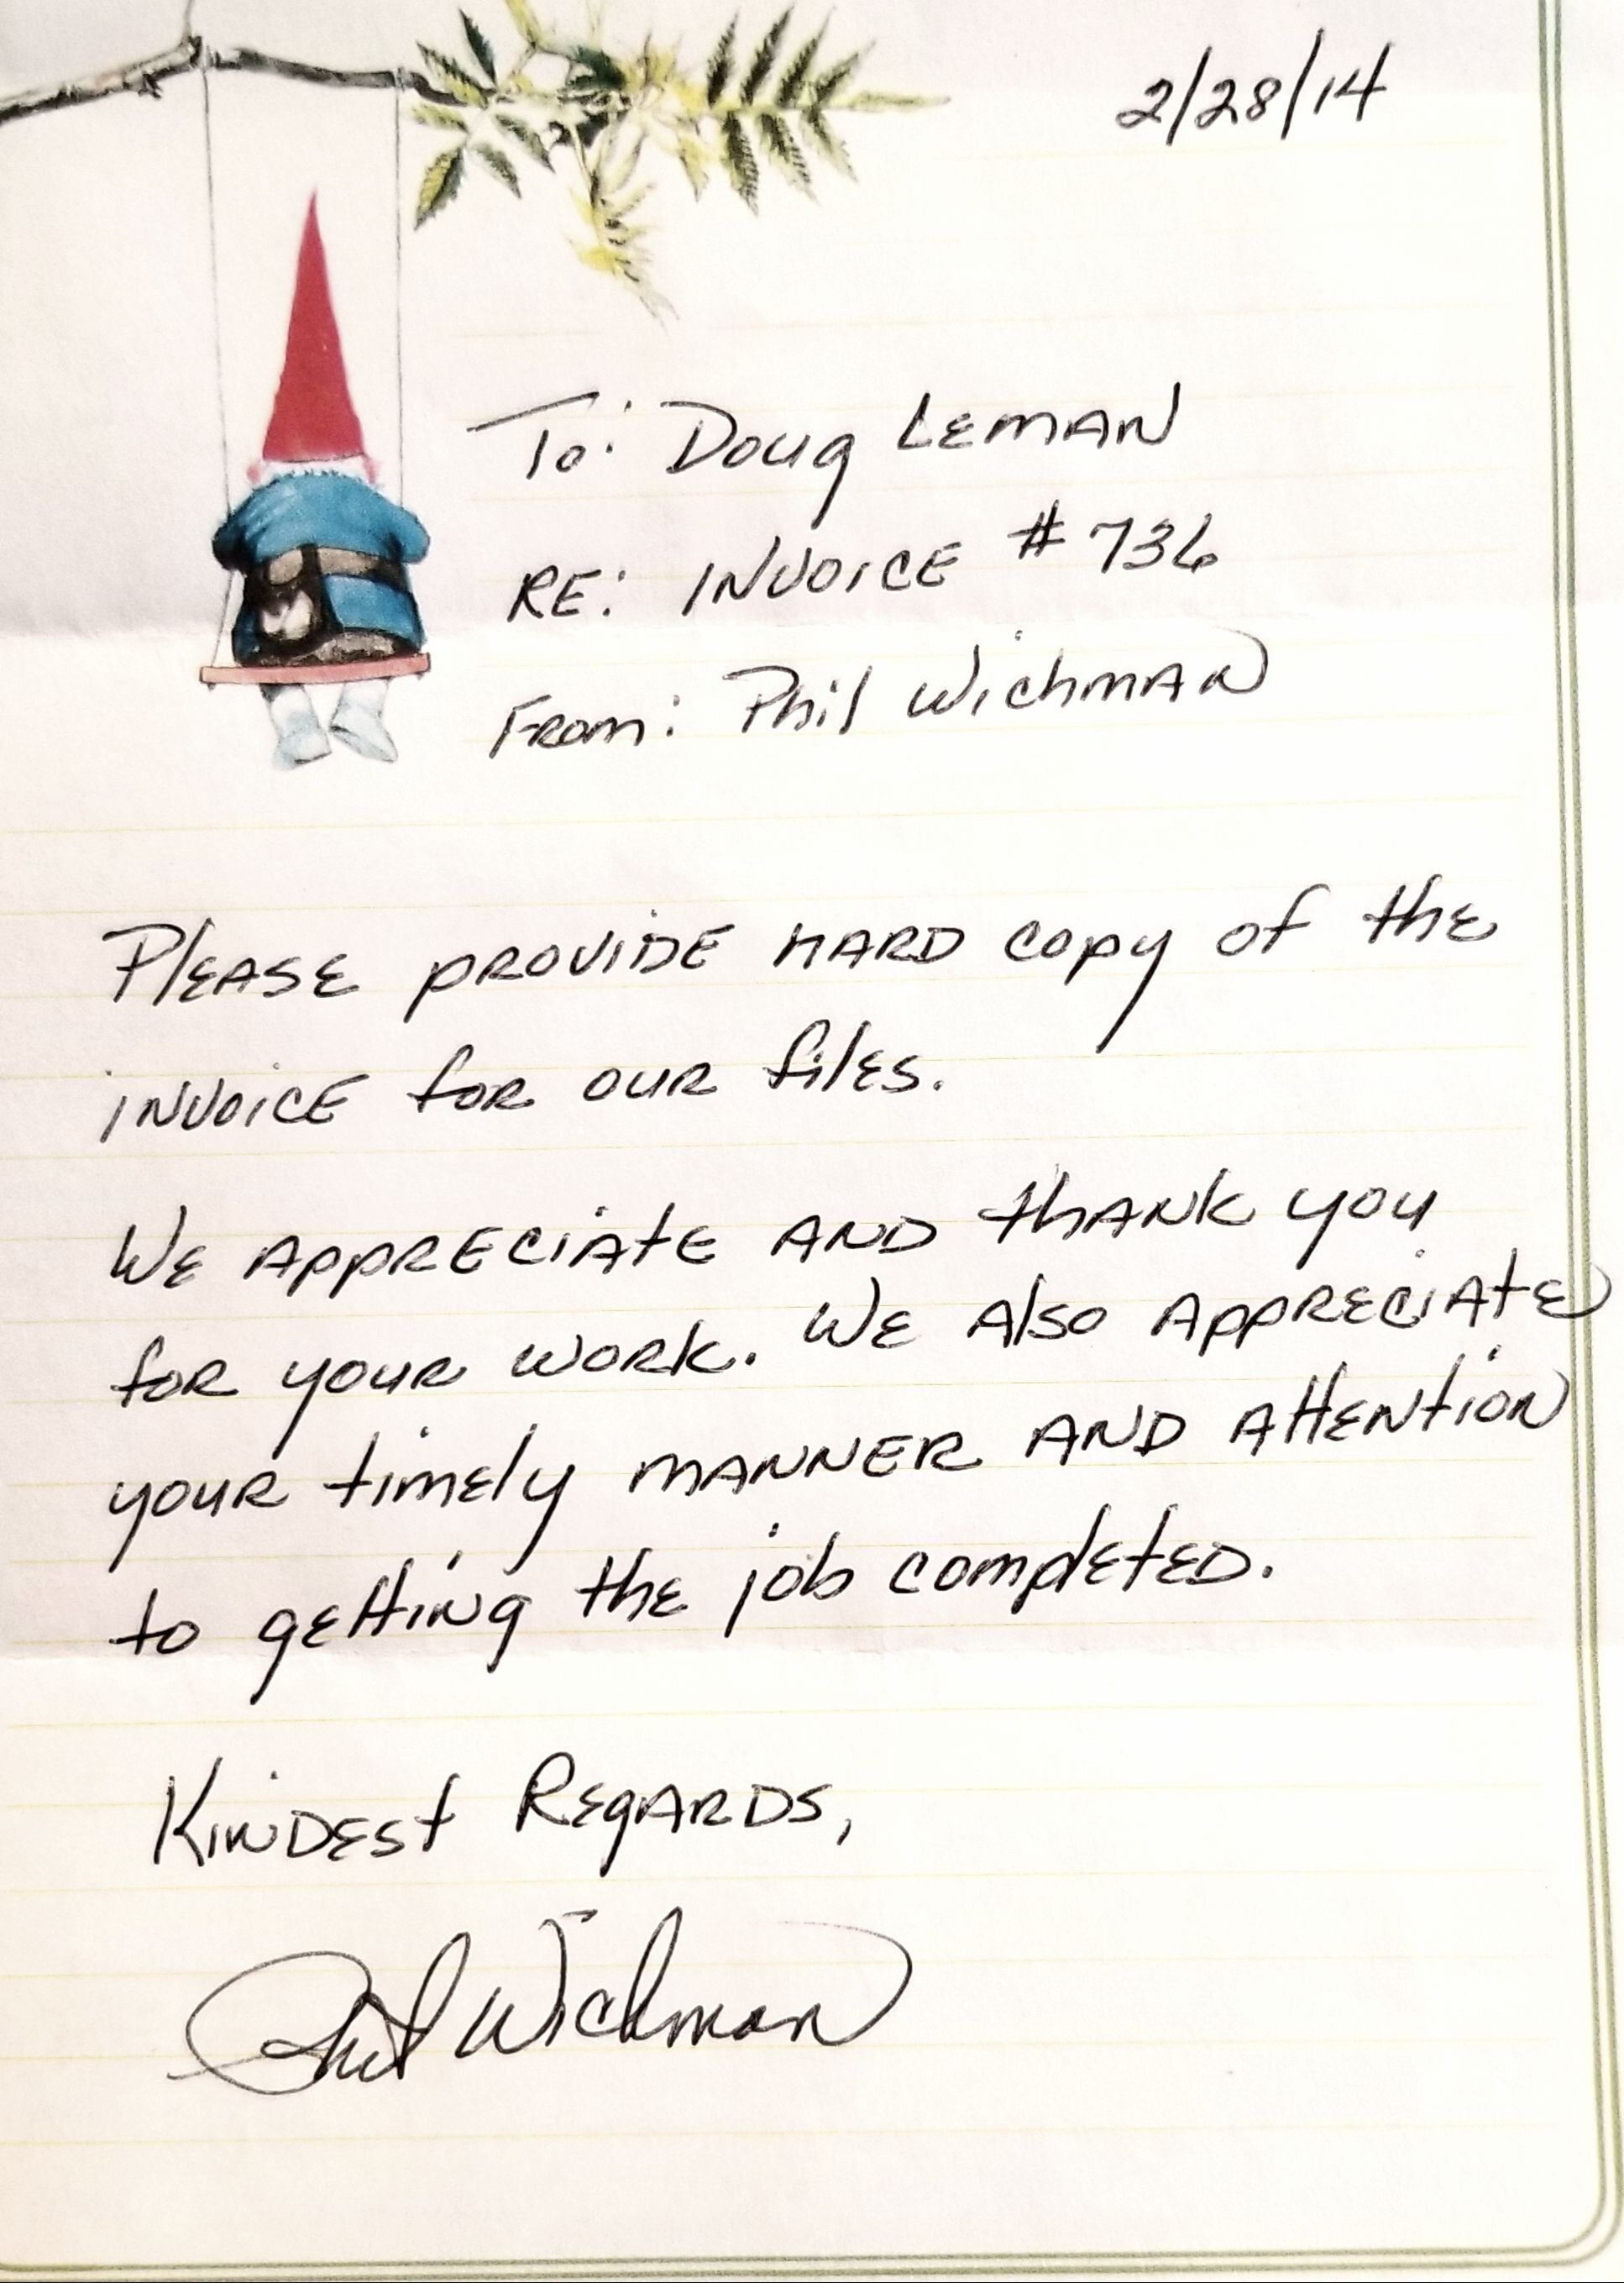 2/28/14
To: Doug Leman
RE: Invoice # 736
From: Phil Wichman
Please provide hard copy of the
invoice for our files.
We appreciate and thank you
for your work. We also appreciate
your timely manner and attention
to getting the job completed.
Kindest Regards,
Phil Wichman